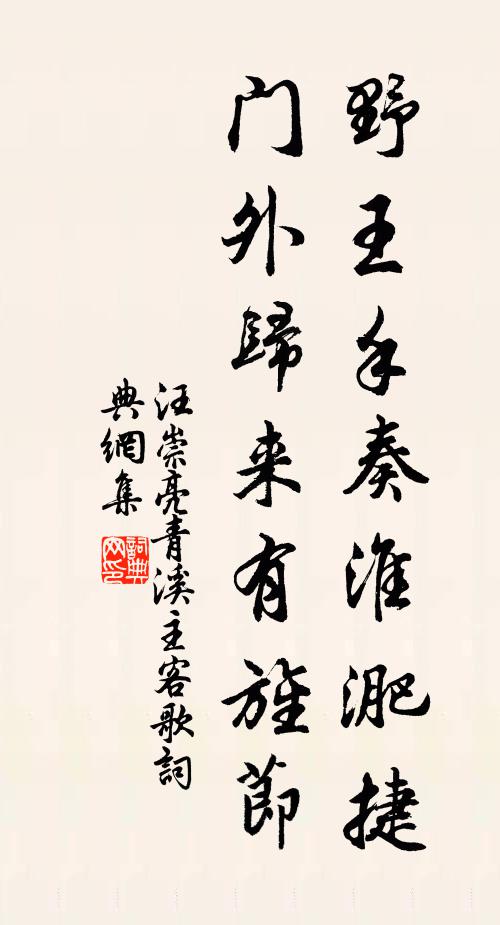 野王手奏淮淝捷
門外歸来有旌節
汪崇亮青溪主客歌詞
典網集
詞典
网印